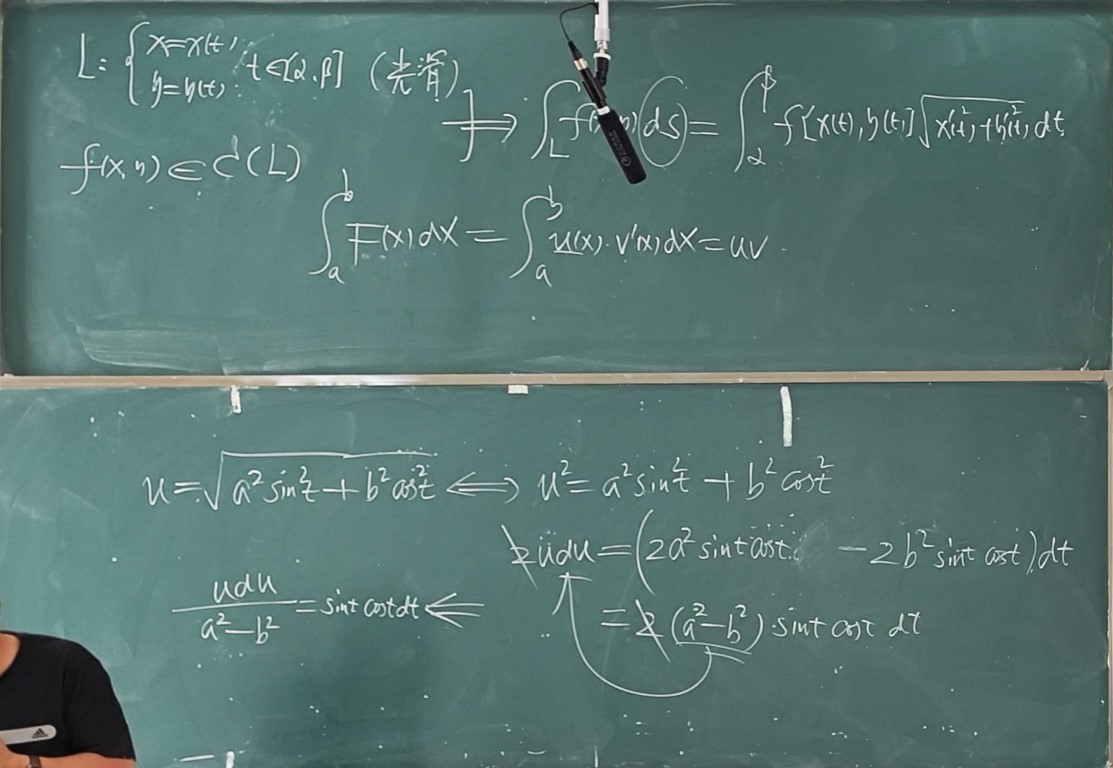 L: { x=x(t), y=y(t). t∈[α,β] (光滑)
f(x,y)∈C(L)
⟹ ∫_L f(x,y) ds = ∫_α^β f[x(t),y(t)] √(x'(t)²+y'(t)²) dt
∫_a^b F(x)dx = ∫_a^b u(x)·v'(x)dx = uv
u=√(a²sin²t+b²cos²t) ⟺ u²=a²sin²t+b²cos²t
2udu=(2a²sint cost −2b²sint cost)dt
=2(a²−b²)sint cost dt
udu/(a²−b²)=sint cost dt ⟸